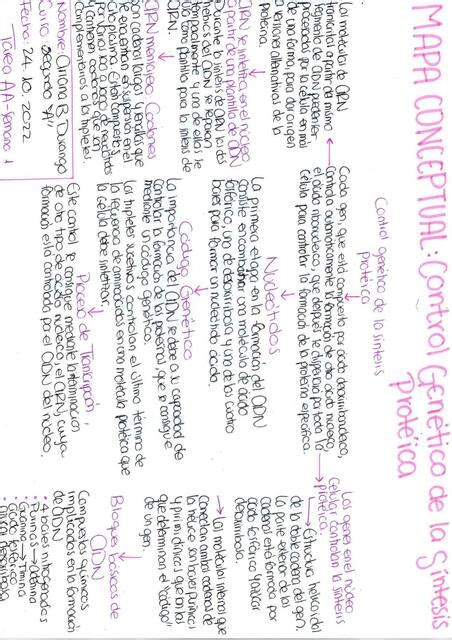 MAPA CONCEPTUAL: Control Genético de la Síntesis
Protéica
Control genético de la síntesis
protéica
Cada gen, que está compuesto por ácido desoxirribonucleico,
controla automáticamente la formación de otro ácido nucleico,
el ácido ribonucleico, que después se dispersa por toda la
célula para controlar la formación de la proteína específica.
Las moléculas de ARN
transcritas a partir del mismo
segmento de ADN pueden ser
procesadas por la célula en más
de una forma, para dar origen
a versiones alternativas de la
proteína.
Los genes en el núcleo
celular controlan la síntesis
protéica
Estructura helicoidal
de la doble cadena del gen.
La parte exterior de las
cadenas está formada por
ácido fosfórico y azúcar
desoxirribosa.
Las moléculas internas que
conectan ambas cadenas de
la hélice son bases púricas
y pirimidínicas que son las
que determinan el "código"
de un gen.
Nucleótidos
La primera etapa en la formación del ADN
consiste en combinar una molécula de ácido
fosfórico, una de desoxirribosa y una de las cuatro
bases para formar un nucleótido ácido.
Código Genético
La importancia del ADN se debe a su capacidad de
controlar la formación de las proteínas, que se consigue
mediante un código genético.
Los tripletes sucesivos controlan en último término
la secuencia de aminoácidos en una molécula protéica que
la célula debe sintetizar.
Proceso de Transcripción
Este control se consigue mediante la intermediación
de otro tipo de ácido nucleico, el ARN, cuya
formación está controlada por el ADN del núcleo.
ARN se sintetiza en el núcleo
a partir de una plantilla de ADN
Durante la síntesis de ARN, las dos
hebras del ADN se separan
temporalmente y una de ellas se
usa como plantilla para la síntesis de
ARN.
ARN mensajero Codones
son cadenas únicas y sencillas que
se encuentran en suspensión en el
citoplasma. Están compuestas
por
y contienen codones que son
complementarios a los tripletes.
Bloques básicos de
ADN
Compuestos químicos
implicados en la formación
de ADN
4 bases nitrogenadas
Purinas → Adenina
Guanina → Timina
Ácido fosfórico
Nombre: Oriana B. Durango
Curso: segundo "A"
Fecha: 24.10.2022
Tarea AA-Semana 1